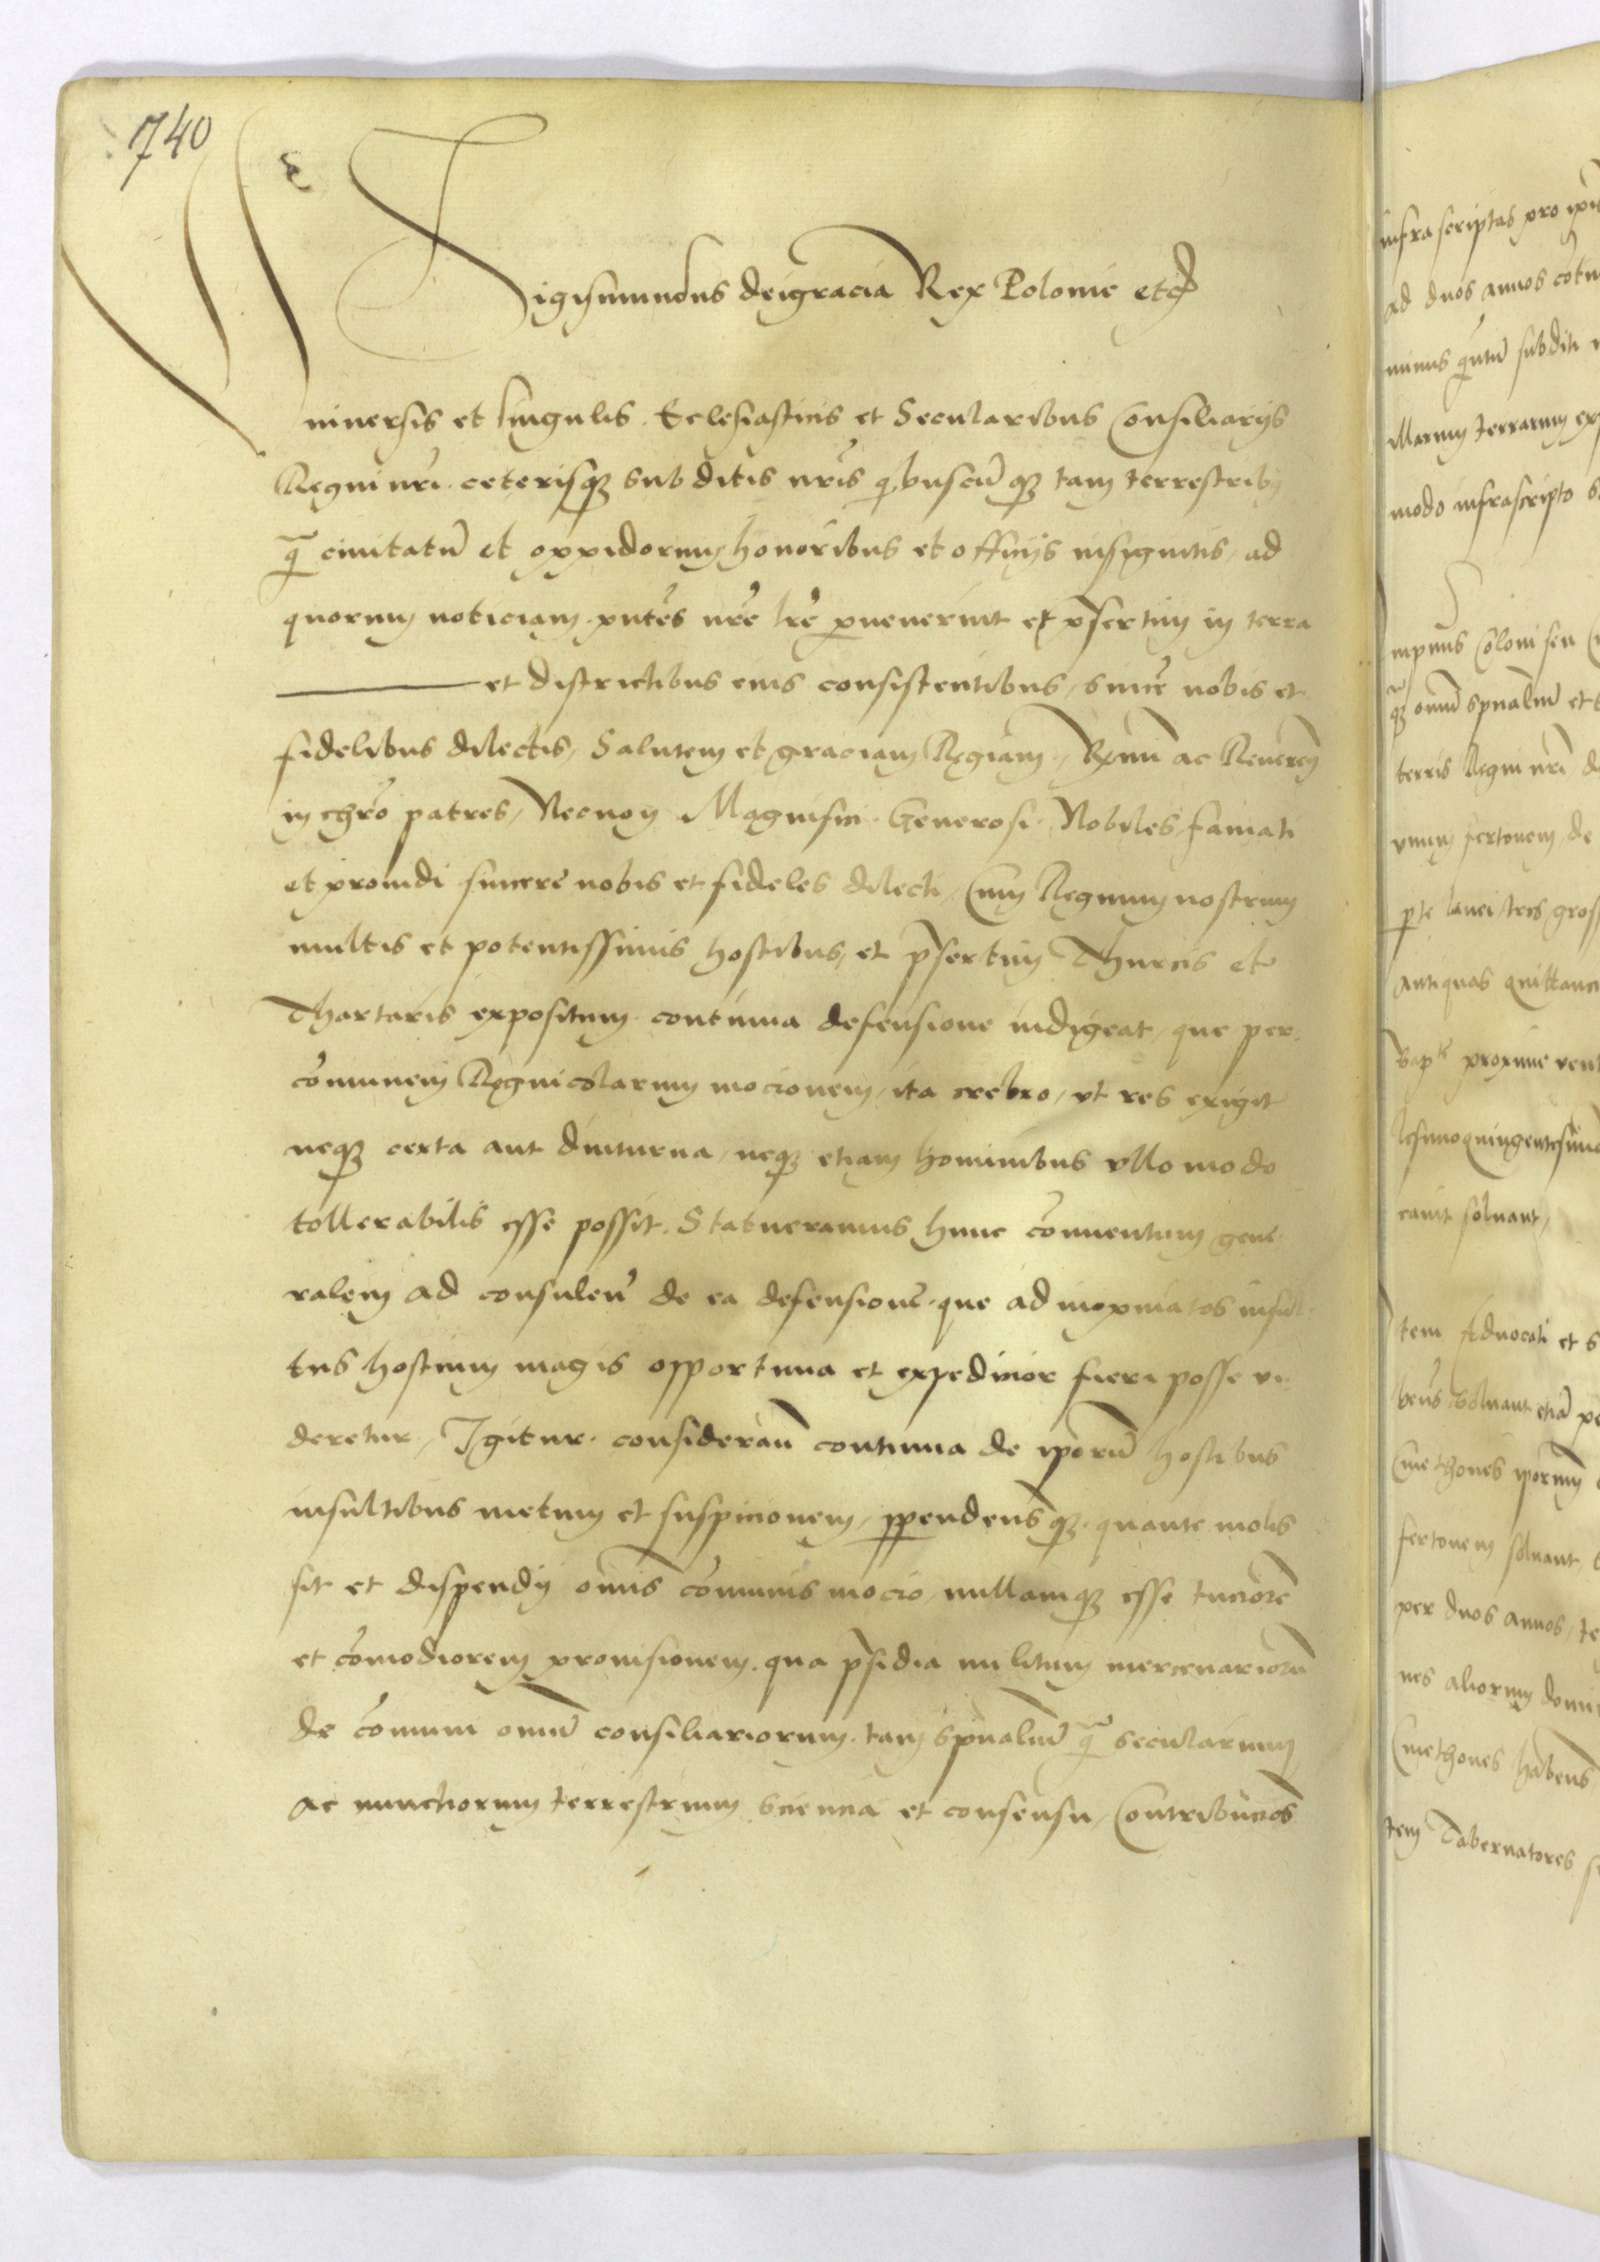 740
Sigismundus deigracia Rex Polonie etc
Universis et singulis Ecclesiasticis et Secularibus Consiliarijs
Regni nri. ceterisq subditis nris quibuscũq tam terrestribus
q̃ civitatũ et oppidorum honoribus et officijs insignitis, ad
quorum noticiam pntes nre lre pervenerint et p̃sertim in terra
et districtibus eius consistentibus, sincere nobis et
fidelibus dilectis, Salutem et graciam Regiam, Rxmi ac Reveren
in chro patres, Necnon Magnifici Generosi Nobiles famati
et providi sincere nobis et fideles dilecti, Cum Regnum nostrum
multis et potentissimis hostibus, et p̃sertim Thurcis et
Thartaris expositum continua defensione indigeat, que per
cõmunem Regnicolarum mocionem, ita crebro, ut res exigit
neq certa aut diuturna, neq etiam hominibus ullo modo
tollerabilis esse possit. Statueramus hunc conventum gene
ralem ad consulen de ea defensione, que ad inopinatos insul
tus hostium magis opportuna et expedicior fieri posse vi
deretur, Igitur consideran continua de ipsorũ hostibus
insultibus metum et suspicionem, perpendensq quante molis
sit et dispendij omnis cõmunis mocio, nullamq esse tuciorẽ
et cõmodiorem provisionem, qua p̃sidia militum mercenariorũ
de cõmuni omniũ consiliariorum tam spũaliũ q̃ secularium
ac nunctiorum terrestrium sciencia et consensu, Contribucões
infrascriptas pro ipsis
ad duos annos
minus subditi
illarum terrarum
modo infrascripto
Inprimis Coloni seu
omniũ spũaliũ et
terris Regni nri
unum fertonem de
tres gross
antiquas quittanci
proxime
quingentesimo
solvant,
Item Advocati et
solvant etiã
Cmethones ipsorum
fertonem solvant
per duos annos,
nes aliorum domi
Cmethones habens
Item Tabernatores